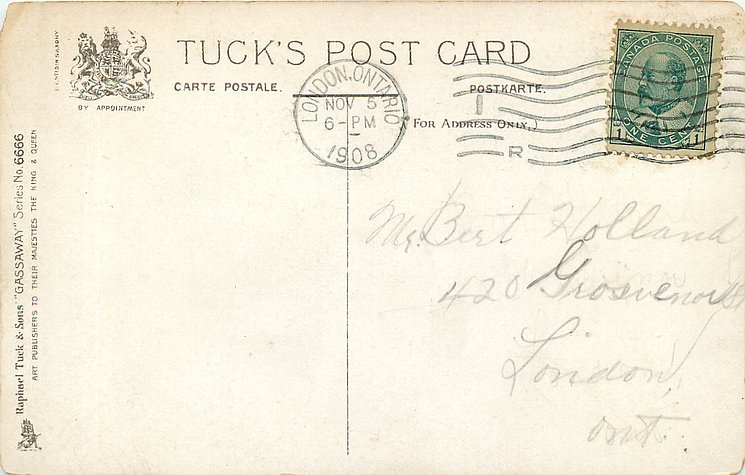 TUCK'S POST CARD
CARTE POSTALE.
POSTKARTE.
(FOR ADDRESS ONLY.)
BY APPOINTMENT
PRINTED IN SAXONY
Raphael Tuck & Sons' "GASSAWAY" Series No. 6666
ART PUBLISHERS TO THEIR MAJESTIES THE KING & QUEEN
LONDON, ONTARIO
NOV 5
6-PM
1908
R
CANADA POSTAGE
1 1
ONE CENT
Mr. Bert Holland
420 Grosvenor St
London,
Ont.